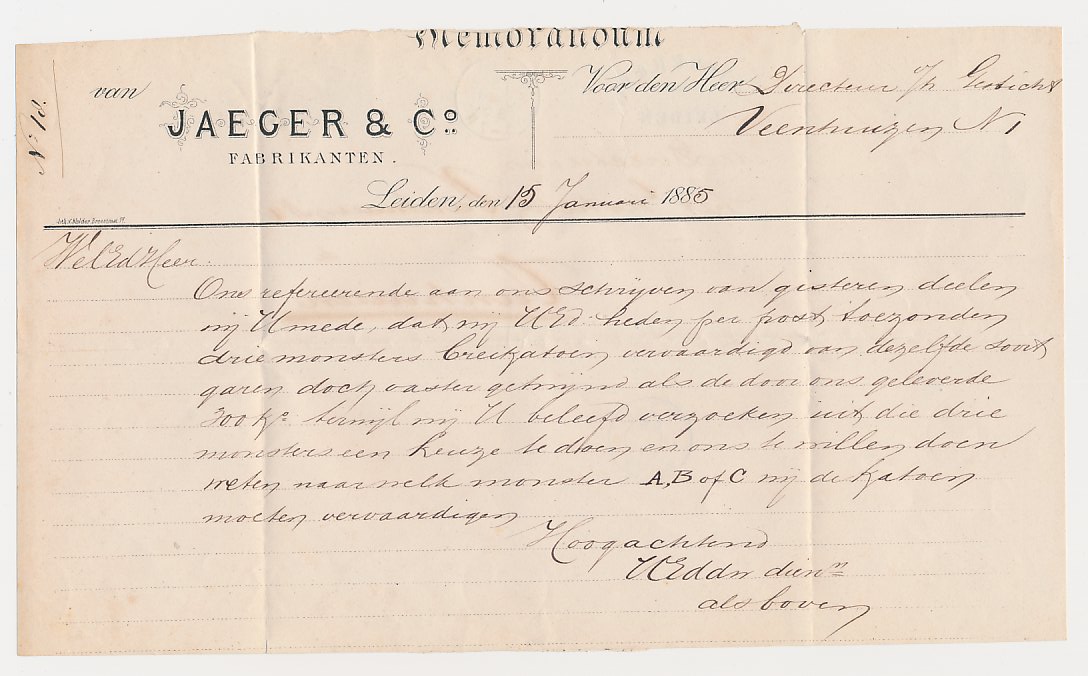 Memorandum
van
JAEGER & Co.
FABRIKANTEN.
Voor den Heer Directeur v/h Gesticht
Veenhuizen N 1
Leiden, den 15 Januari 1885
WelEdHeer
Ons refereerende aan ons schrijven van gisteren deelen
wij U mede, dat wij UEd. heden per post toezonden
drie monsters breikatoen vervaardigd van dezelfde soort
garen doch vaster getwijnd als de door ons geleverde
300 Ko terwijl wij U beleefd verzoeken uit die drie
monsters een keuze te doen en ons te willen doen
weten naar welk monster A, B of C wij de Katoen
moeten vervaardigen
Hoogachtend
UEddw dienn
als boven